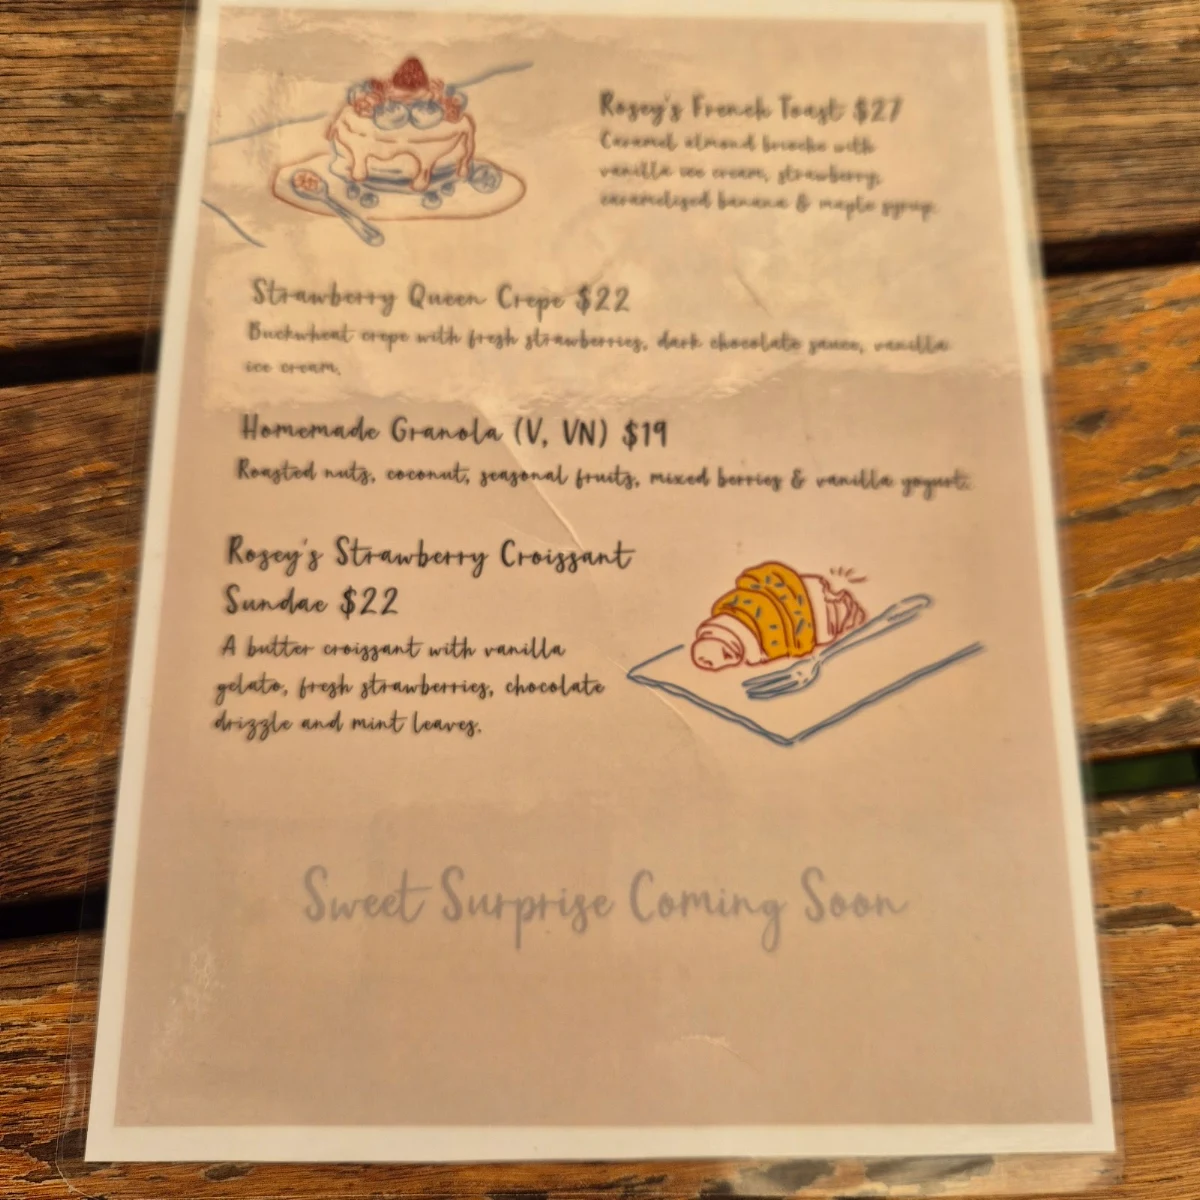 Rosey's French Toast $27
Caramel almond brioche with
vanilla ice cream, strawberry,
caramelised banana & maple syrup.
Strawberry Queen Crepe $22
Buckwheat crepe with fresh strawberries, dark chocolate sauce, vanilla
ice cream.
Homemade Granola (V, VN) $19
Roasted nuts, coconut, seasonal fruits, mixed berries & vanilla yogurt.
Rosey's Strawberry Croissant
Sundae $22
A butter croissant with vanilla
gelato, fresh strawberries, chocolate
drizzle and mint leaves.
Sweet Surprise Coming Soon